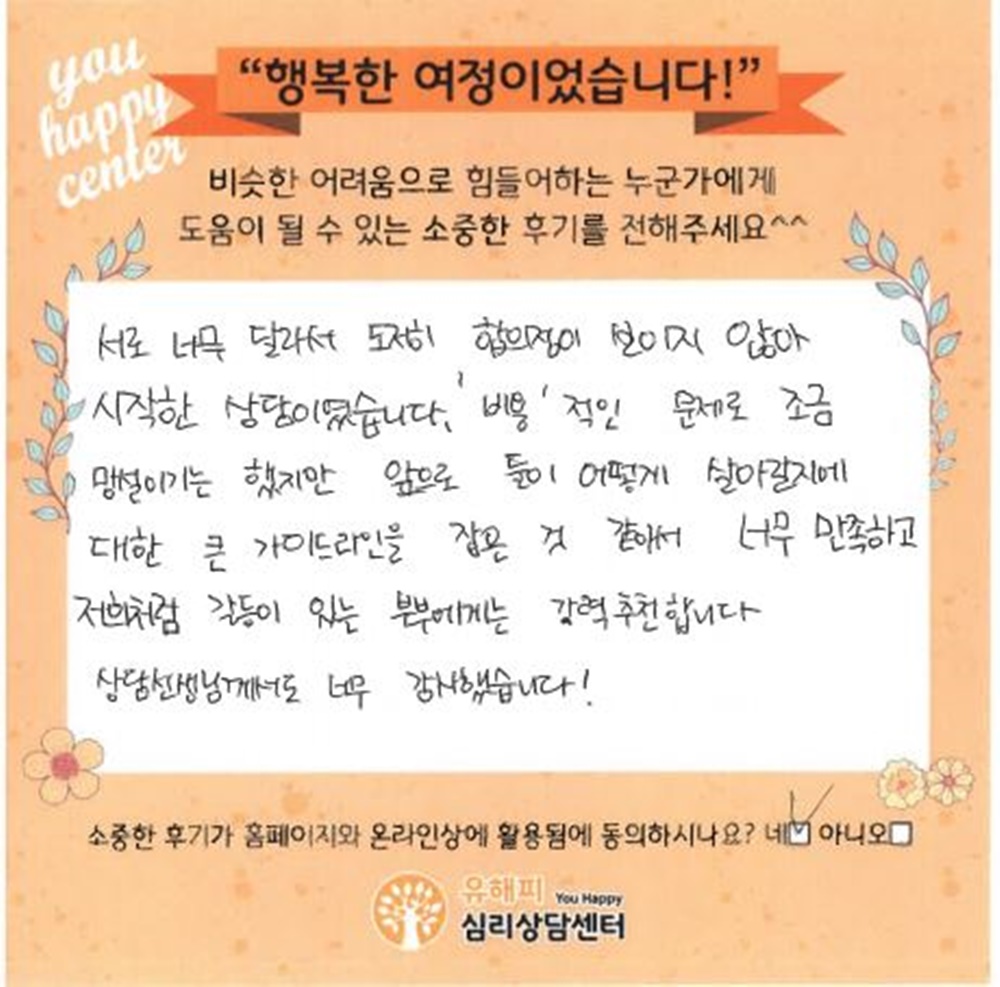 you
happy
center
“행복한 여정이었습니다!”
비슷한 어려움으로 힘들어하는 누군가에게
도움이 될 수 있는 소중한 후기를 전해주세요^^
서로 너무 달라서 도저히 합의점이 보이지 않아
시작한 상담이였습니다. '비용' 적인 문제로 조금
망설이기는 했지만 앞으로 둘이 어떻게 살아갈지에
대한 큰 가이드라인을 잡은 것 같아서 너무 만족하고
저희처럼 갈등이 있는 부부에게는 강력추천합니다
상담선생님께서도 너무 감사했습니다!
소중한 후기가 홈페이지와 온라인상에 활용됨에 동의하시나요? 네☑ 아니오☐
유해피 You Happy
심리상담센터